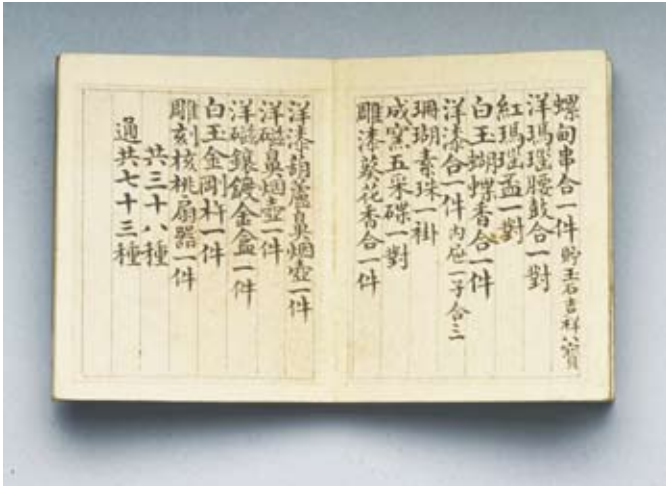 螺甸串合一件貯玉石吉祥八寶
洋瑪瑙腰鼓合一對
紅瑪瑙盃一對
白玉蝴蝶香合一件
洋漆合一件內屉一子合三
珊瑚素珠一掛
成窯五采碟一對
雕漆葵花香合一件
洋漆葫蘆鼻烟壺一件
洋磁鼻烟壺一件
洋磁鑲鍍金盒一件
白玉金剛杵一件
雕刻核桃扇器一件
共三十八種
通共七十三種